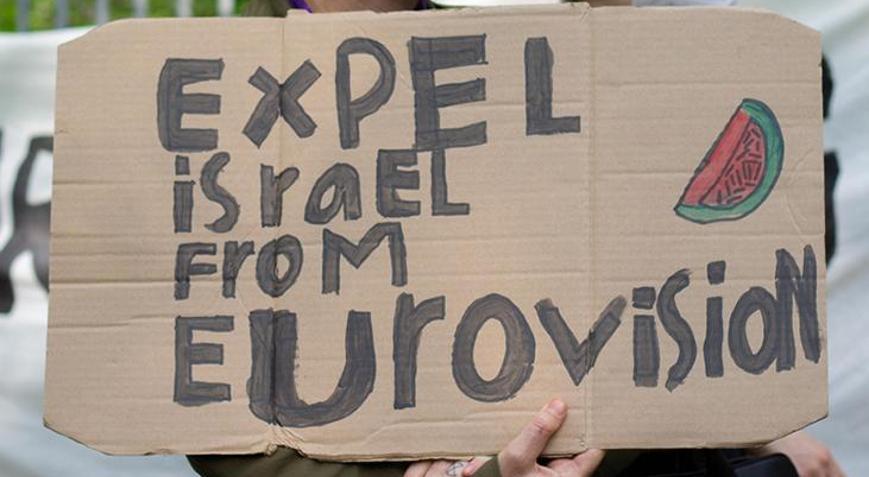 EXPEL
iSraEL
FROM
EUrOViSiON